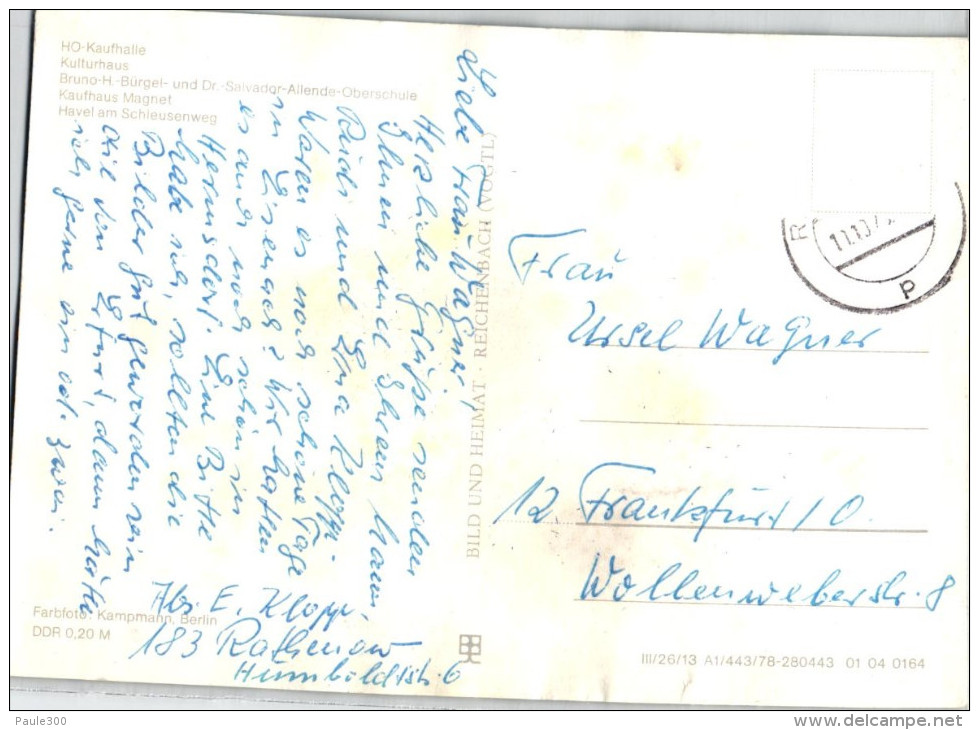 HO-Kaufhalle
Kulturhaus
Bruno-H.-Bürgel- und Dr.-Salvador-Allende-Oberschule
Kaufhaus Magnet
Havel am Schleusenweg
Liebe Frau Wagner,
Herzliche Grüße senden
Ihnen und Ihrem Mann
Reich und Eva Klopp.
Waren es noch schöne Tage
in Eisenach? Wir hatten
es auch noch schön in
Hermsdorf. Eine Bitte
habe ich, sollten die
Bilder gut geworden sein
die von Erfurt, dann hätte
ich gerne ein od. zwei.
Abs. E. Klopp,
183 Rathenow
Humboldtstr. 6
Farbfoto: Kampmann, Berlin
DDR 0,20 M
BILD UND HEIMAT · REICHENBACH (VOGTL)
R
11.10.7
P
Frau
Ursel Wagner
12 Frankfurt / O.
Wollenweberstr. 8
III/26/13 A1/443/78-280443 01 04 0164
Paule300
www.delcampe.net